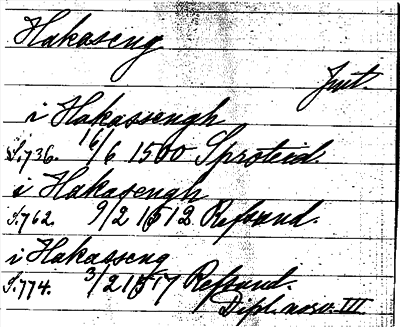 Hakaseng
Jmt.
i Hakassengh
S.736. 16/6 1500 Sproteid.
i Hakasengh
S.762. 9/2 1512 Refsund.
i Hakasseng
S.774. 3/2 1517 Refsund.
Dipl. norv. III